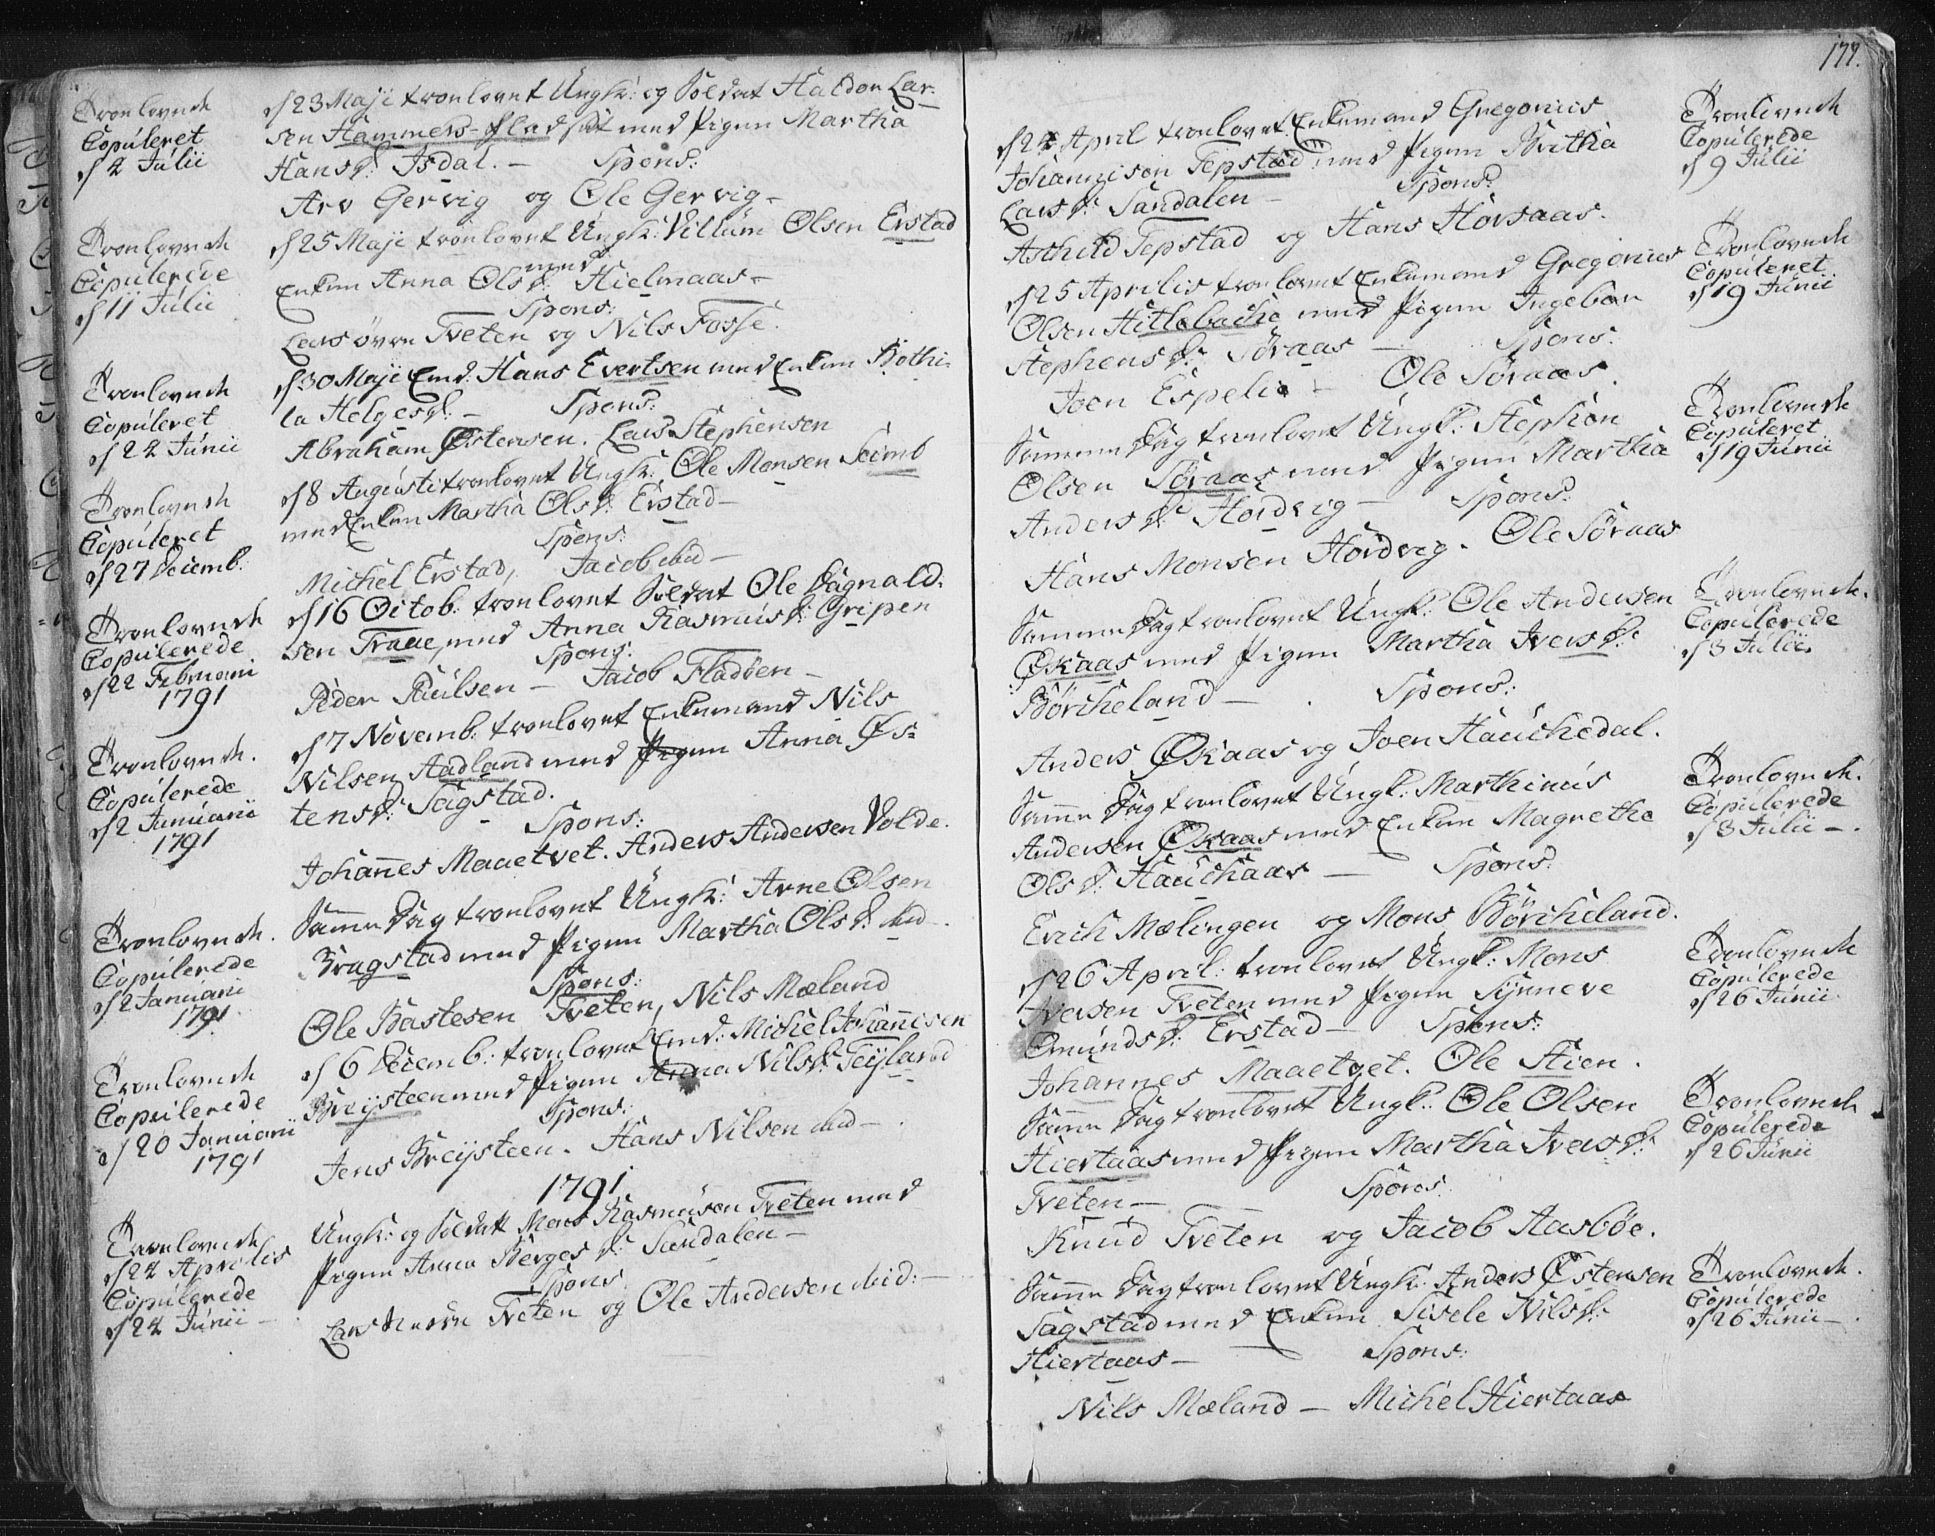 Troelovede
Copuleret
d 2 Julii
d 23 Maji troelovet Ungk: og Soldat Haldor Lar-
sen Hammers-Pladset med Pigen Martha
Hansd: Isdal. — Spons:
Arv Gervig og Ole Gervig -
Troelovede
Copulerede
d 11 Julii
d 25 Maji troelovet Ungk: Villum Olsen Erstad
med
Enken Anna Olsd: Hielmaas -
Spons:
Lars øvre Tveten og Nils Fosse.
Troelovede
Copuleret
d 22 Junii
d 30 Maji Emd: Hans Evertsen med Enken Bothi-
la Helgesd: — Spons:
Abraham Østensen. Lars Stephensen
Troelovede
Copuleret
d 27 Decemb:
d 8 Augusti troelovet Ungk: Ole Monsen Seimb
med Enken Martha Olsd: Erstad —
Spons:
Michel Erstad, Jacob ibid —
Troelovede
Copulerede
d 22 Februarii
1791
d 16 Octob: troelovet Soldat Ole Dagnald-
sen Traae, med Anna Rasmusd: Gripen
Spons:
Peder Paulsen — Jacob Fladøen —
Troelovede.
Copulerede
d 2 Januarii
1791
d 7 Novemb: troelovet Enkemand Nils
Nilsen Aadland med Pigen Anna Øs-
tensd: Tagstad.
Spons:
Johannes Maaetvet. Anders Andersen Volde.
Troelovede.
Copulerede
d 2 Januarii
1791
Samme Dag troelovet Ungk: Arne Olsen
Bragstad med Pigen Martha Olsd: ibid —
Spons:
Ole Bastesen Tveten, Nils Mæland
Troelovede
Copulerede
d 20 Januarii
1791
d 6 Decemb: troelovet Emd: Michel Johannesen
Breijsteen med Pigen Anna Nilsd: Teijland
Spons:
Jens Breijsteen. Hans Nilsen ibid —
1791
Troelovede
d 24 Aprilis
Copulerede
d 24 Junii —
Ungk: og Soldat Mons Rasmusen Tveten med
Pigen Anna Børges d: Sandalen —
Spons
Lars nedre Tveten og Ole Andersen ibid: —
177.
d 24 April troelovet Enkemand Gregorius
Johannison Tepstad med Pigen Britha
Larsd: Sandalen — Spons:
Askild Tepstad og Hans Horsaas.
Troelovede
Copulerede
d 9 Julii
d 25 Aprilis troelovet Enkemand Gregorius
Olsen Hitlebache med Pigen Ingebor
Stephensd: Søraas — Spons:
Joen Espelie — Ole Søraas.
Troelovede
Copuleret
d 19 Junii
Samme Dag troelovet Ungk: Stephen
Olsen Søraas med Pigen Martha
Anders d: Hordvig — Spons:
Hans Monsen Hordvig. Ole Søraas
Troelovede
Copuleret
d 19 Junii
Samme Dag troelovet Ungk: Ole Andersen
Øxaas med Pigen Martha Ivers d:
Børcheland — Spons:
Anders Øxaas og Joen Hauchedal.
Troelovede.
Copulerede
d 3 Julii
Samme Dag troelovet Ungk: Marthinus
Andersen Øxaas med Enken Magrethe
Ols d: Hauchaas — Spons:
Erich Mælingen og Mons Børcheland.
Troelovede.
Copulerede
d 3 Julii —.
d 26 April: troelovet Ungk: Mons
Iversen Tveten med Pigen Synneve
Omunds d: Erstad — Spons:
Johannes Maaetvet. Ole Stien.
Troelovede
Copulerede
d 26 Junii
Samme Dag troelovet Ungk: Ole Olsen
Hiertaas med Pigen Martha Ivers d:
Tveten — Spons:
Knud Tveten og Jacob Aasbøe.
Troelovede
Copulerede
d 26 Junii
Samme Dag troelovet Ungk: Anders Østensen
Tagstad med Enken Sisele Nilsd:
Hiertaas — Spons:
Nils Mæland — Michel Hiertaas
Troelovede.
Copulerede
d 26 Junii —.